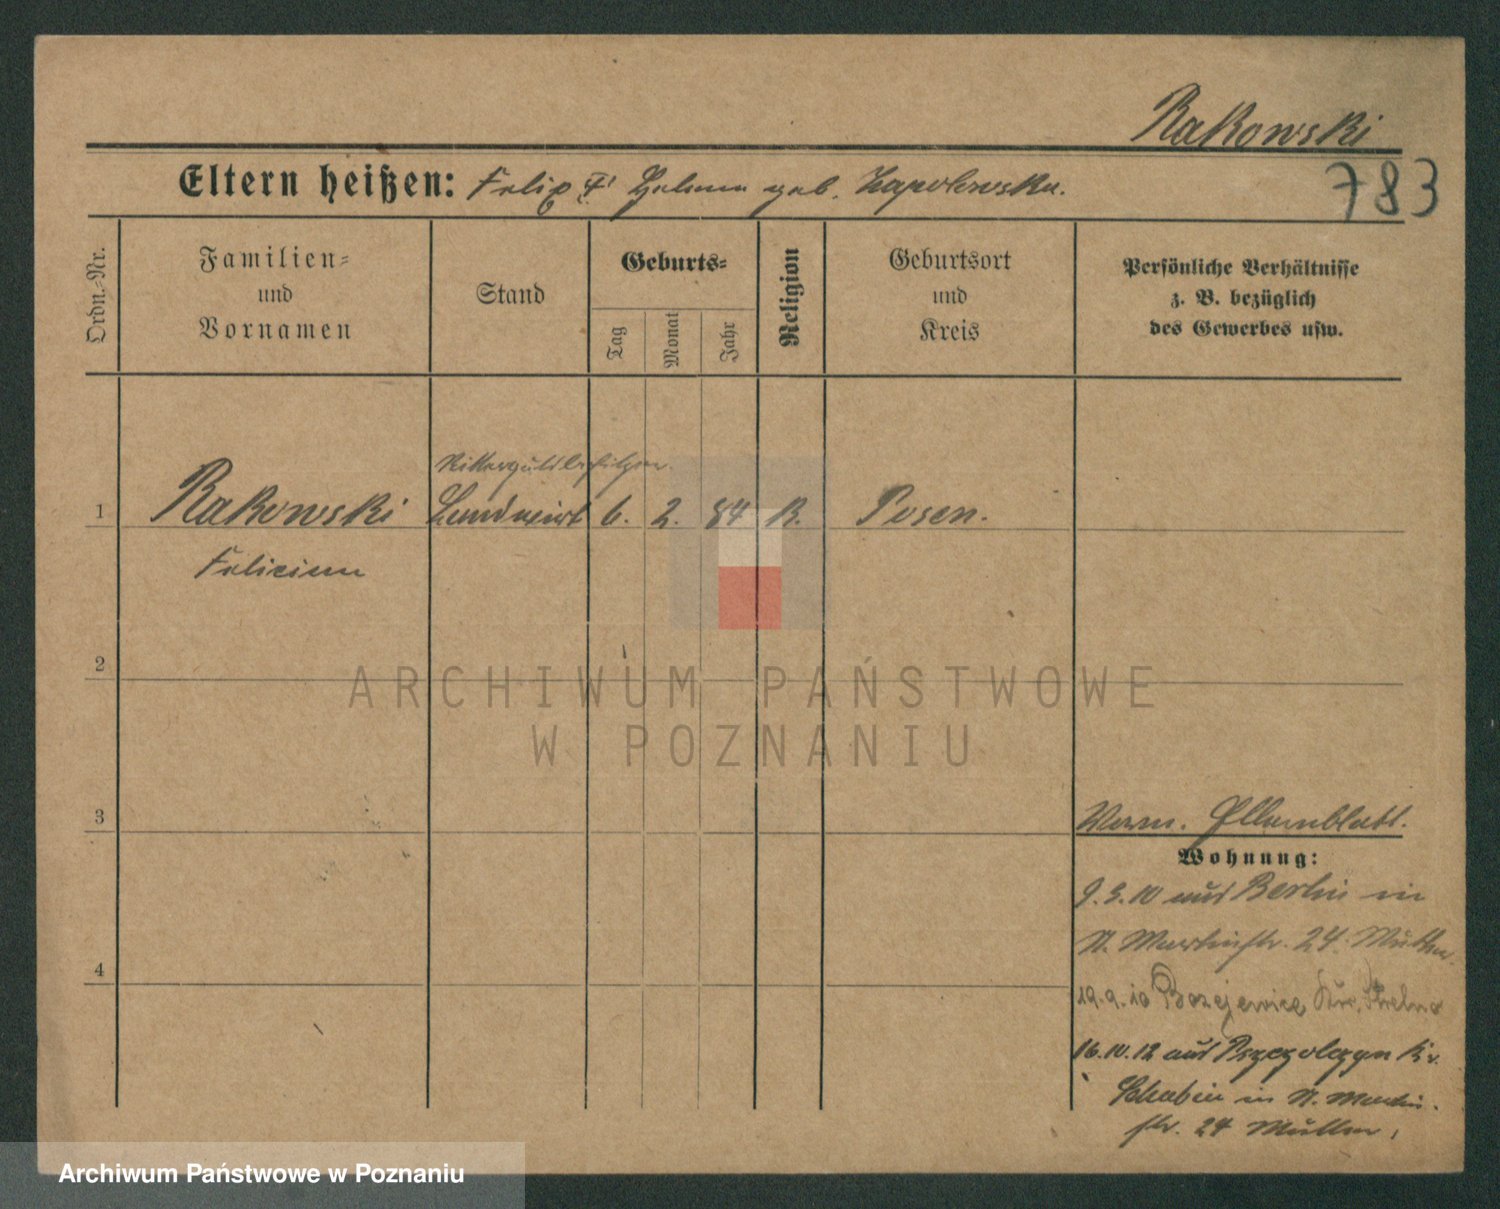 Rakowski
Eltern heißen: Felix u. Helene geb. Zapolowska.
783
Ordn.-Nr.
Familien-
und
Vornamen
Stand
Geburts-
Tag
Monat
Jahr
Religion
Geburtsort
und
Kreis
Persönliche Verhältnisse
z. B. bezüglich
des Gewerbes usw.
Rittergutsbesitzer
1 Rakowski Landwirt 6. 2. 84 K. Posen.
Felician
2
3
Verm. Elternblatt.
Wohnung:
9.3.10 aus Berlin in
St. Martinstr. 24. Mutter.
4
19.9.10 Bozejewice Kr. Strelno
16.10.12 aus Kr.
Schubin in St. Martin-
str. 24 Mutter.
ARCHIWUM PAŃSTWOWE
W POZNANIU
Archiwum Państwowe w Poznaniu